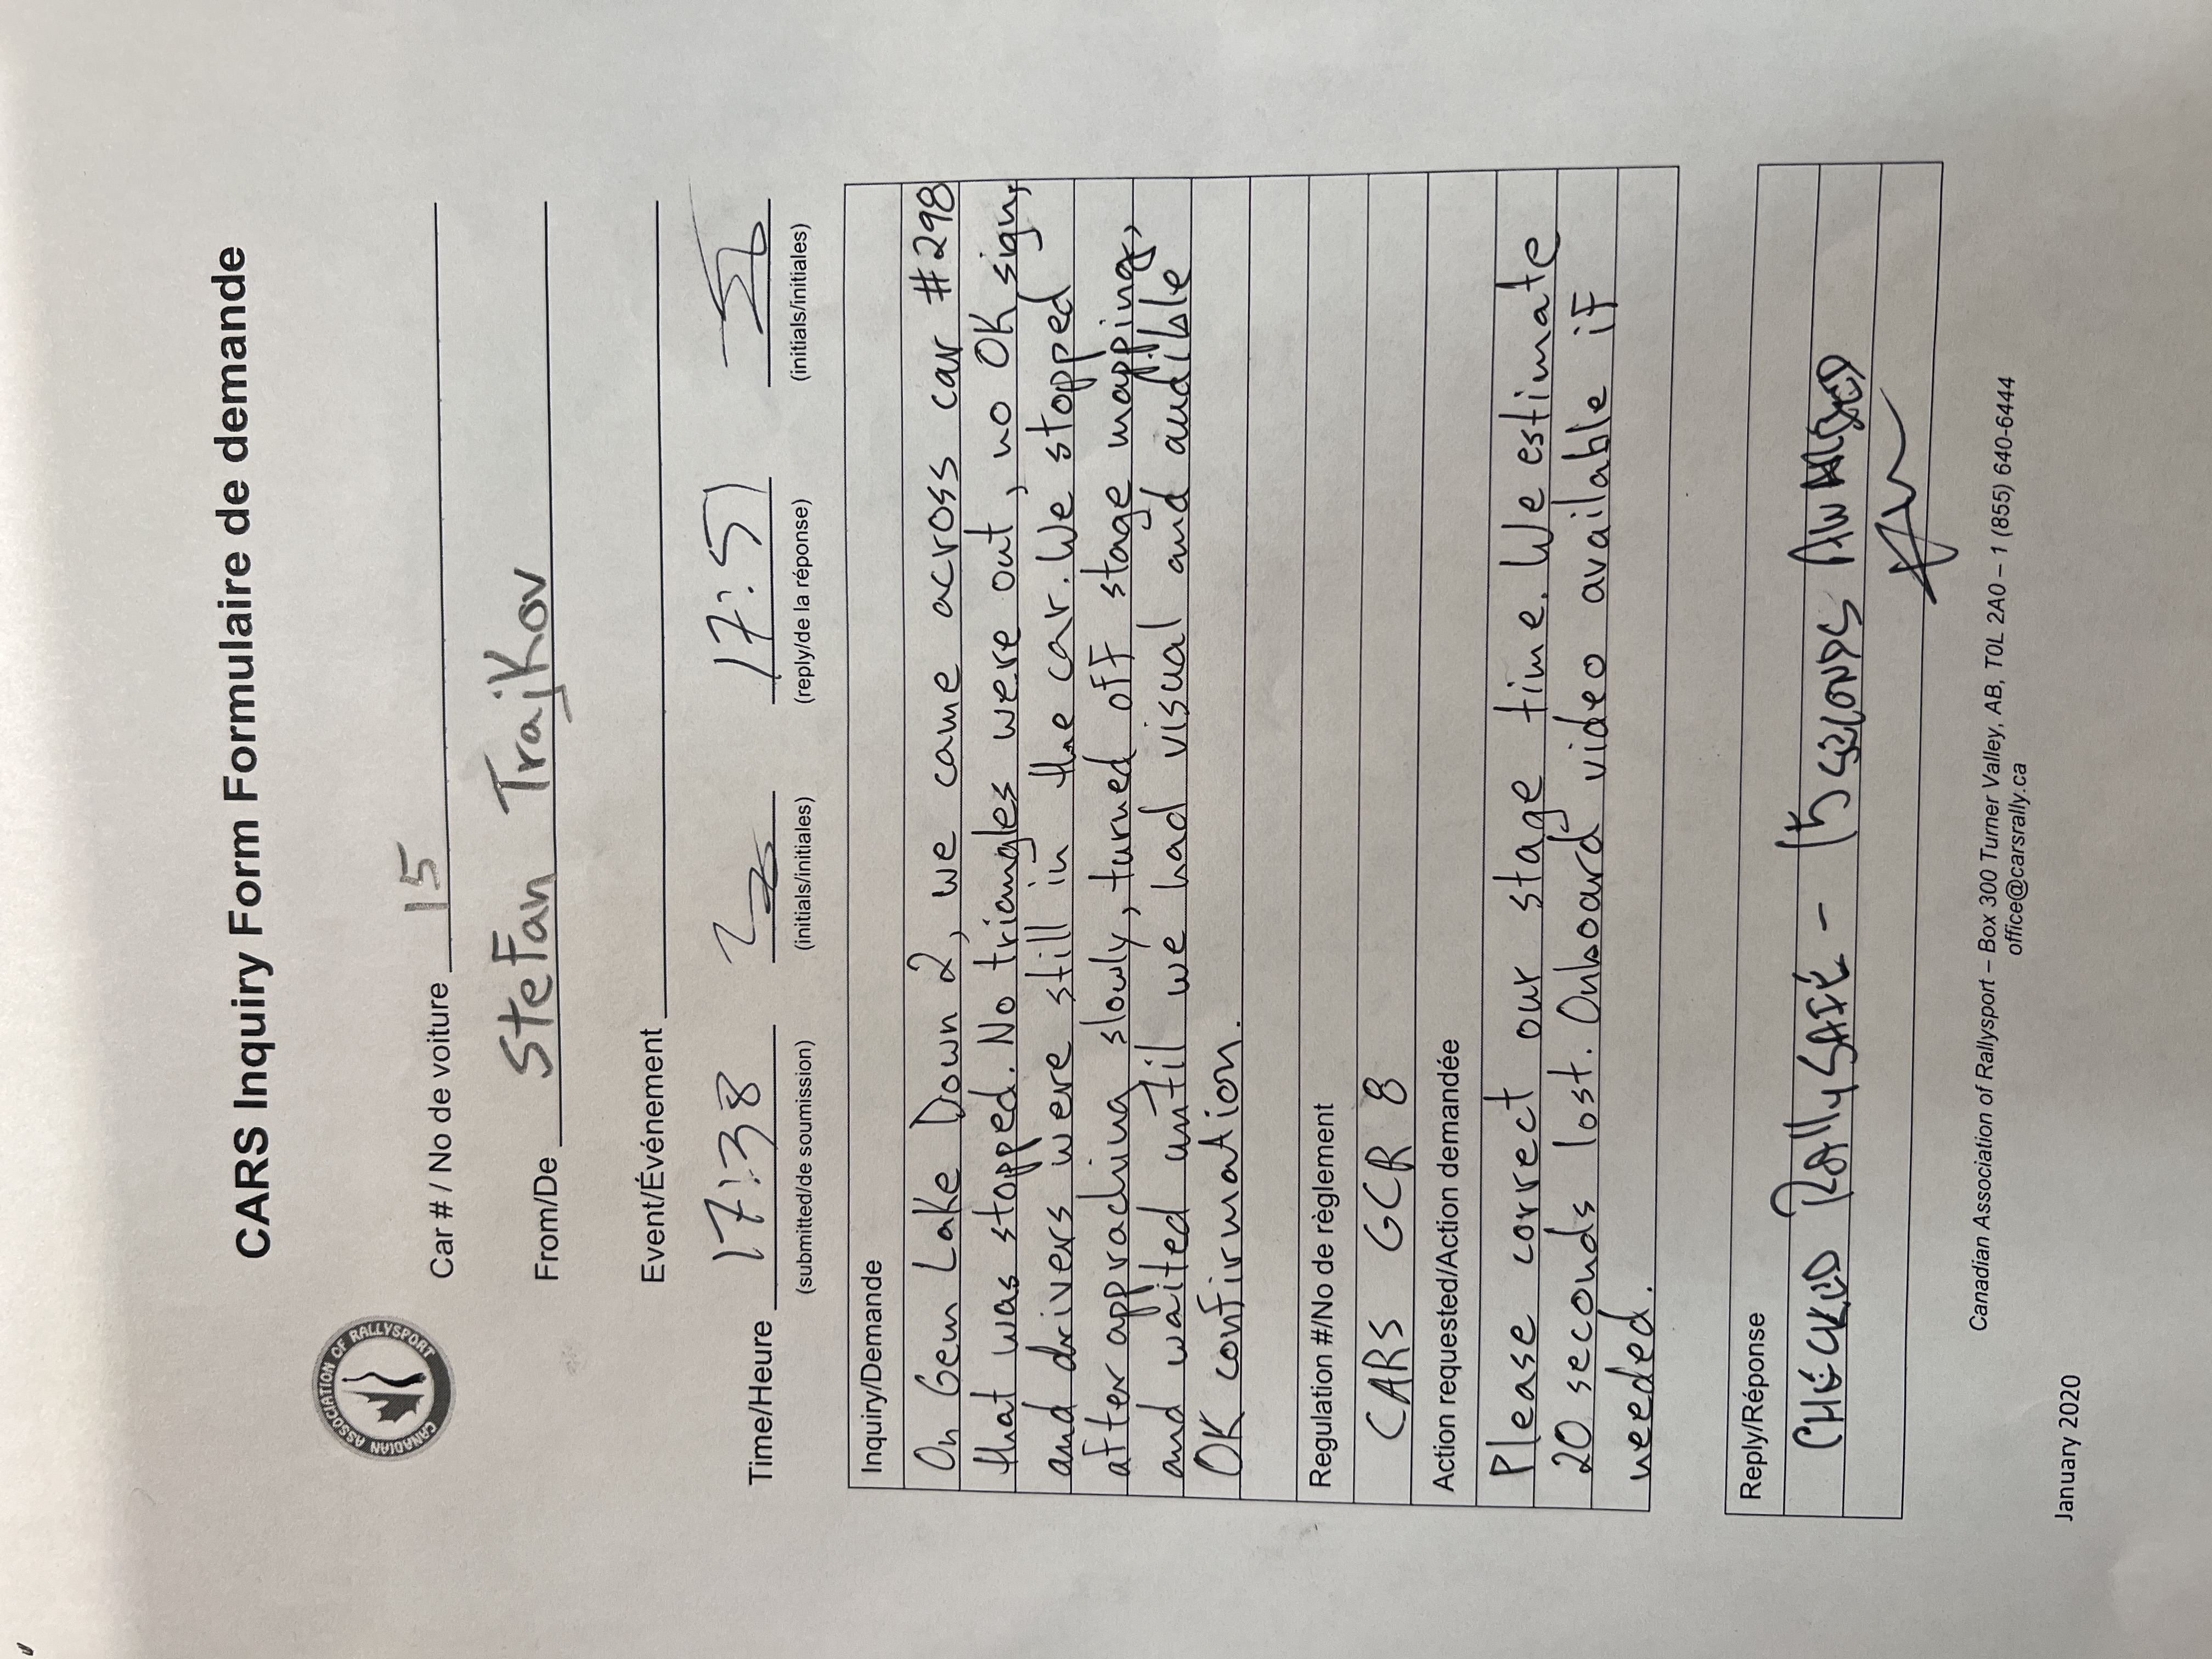 CARS Inquiry Form Formulaire de demande
CANADIAN ASSOCIATION OF RALLYSPORT
Car # / No de voiture 15
From/De Stefan Trajkov
Event/Événement
Time/Heure 17:38 17:51
(submitted/de soumission) (initials/initiales) (reply/de la réponse) (initials/initiales)
Inquiry/Demande
On Gem Lake Down 2, we came across car #298
that was stopped. No triangles were out, no OK sign,
and drivers were still in the car. We stopped
after approaching slowly, turned off stage mapping,
and waited until we had visual and audible
OK confirmation.
Regulation #/No de règlement
CARS GCR 8
Action requested/Action demandée
Please correct our stage time. We estimate
20 seconds lost. Onboard video available if
needed.
Reply/Réponse
CHECKED RallySAFE - 15 SECONDS AWARDED
Canadian Association of Rallysport – Box 300 Turner Valley, AB, T0L 2A0 – 1 (855) 640-6444
office@carsrally.ca
January 2020